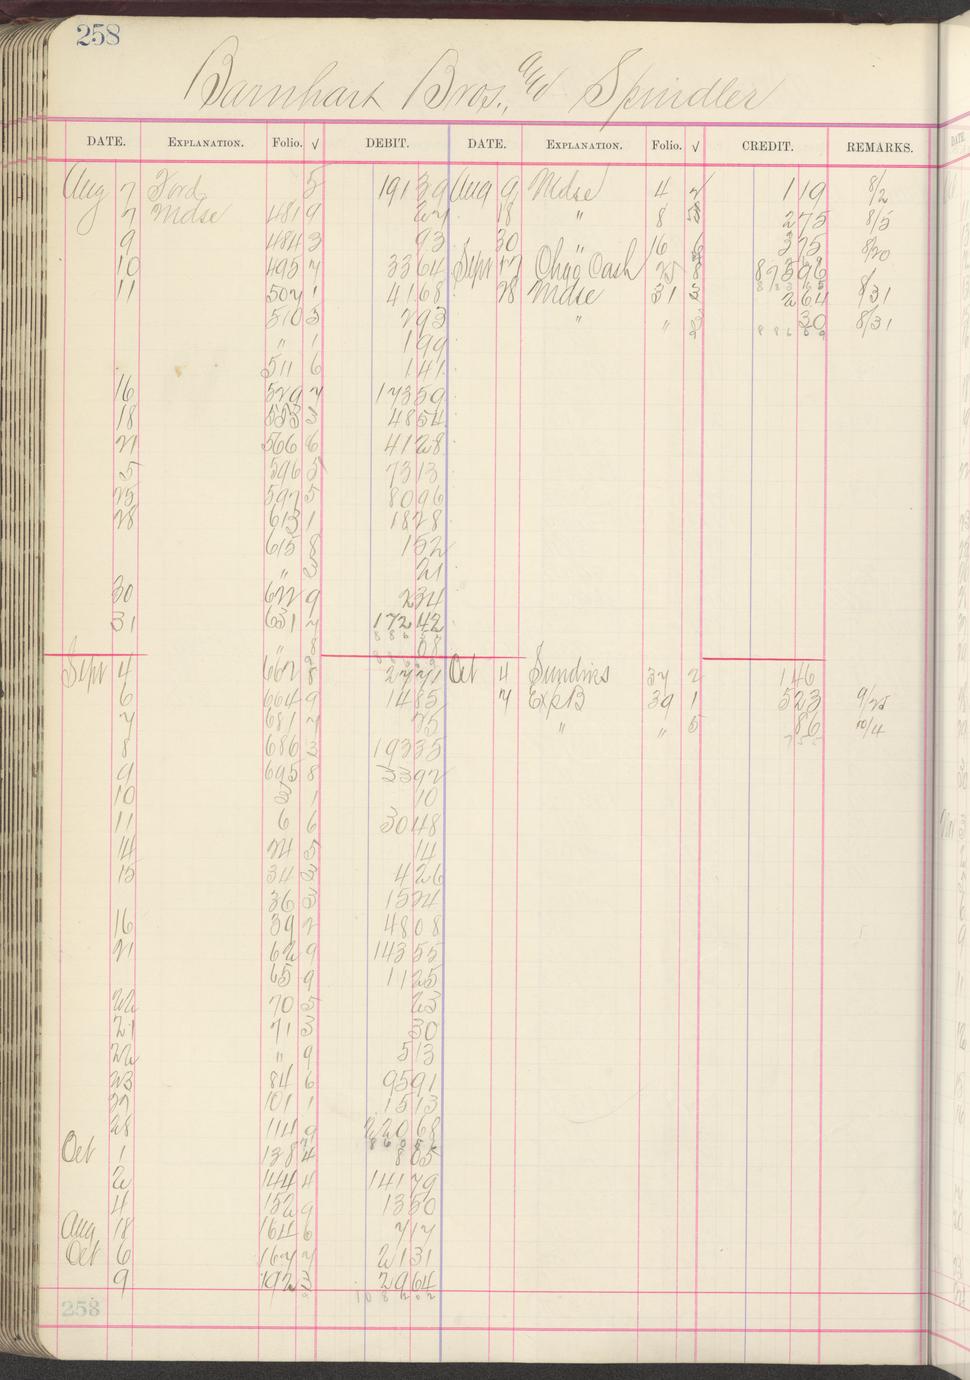 258
Barnhart Bros. and Spindler
DATE. EXPLANATION. Folio. √ DEBIT. DATE. EXPLANATION. Folio. √ CREDIT. REMARKS.
Aug 7 Ford 5 191 39 Aug 9 Mdse 4 2 1 19 8/2
7 Mdse 481 9 27 18 " 8 3 2 75 8/5
9 484 3 93 30 " 16 6 3 75 8/20
10 495 7 33 64 Sept 17 Cash 25 8 875 96
11 507 1 41 68 28 Mdse 31 3 2 64 8/31
510 3 2 93 " " 30 8/31
" 1 1 99
511 6 1 41
16 529 7 173 59
18 3 48 54
21 566 6 41 28
5 596 5 73 13
25 597 5 80 96
28 613 1 18 28
615 8 1 52
" 3 21
30 622 9 2 34
31 631 7 172 42
" 8 08
Sept 4 662 8 27 71 Oct 4 Sundries 37 2 1 46
6 664 9 14 85 7 Exp B 39 1 5 23 9/25
7 681 7 75 " " 5 86 10/4
8 686 3 193 35
9 695 8 33 92
10 3 1 10
11 6 6 30 48
14 24 5 14
15 34 3 4 26
36 3 15 24
16 39 2 48 08
21 62 9 143 55
65 9 11 25
22 70 5 23
21 71 3 30
22 " 9 5 13
23 84 6 95 91
27 101 1 15 13
28 114 9 220 68
Oct 1 138 4 8 85
2 144 4 141 79
4 152 9 13 50
Aug 18 164 6 7 17
Oct 6 167 7 21 31
9 192 3 29 64
258